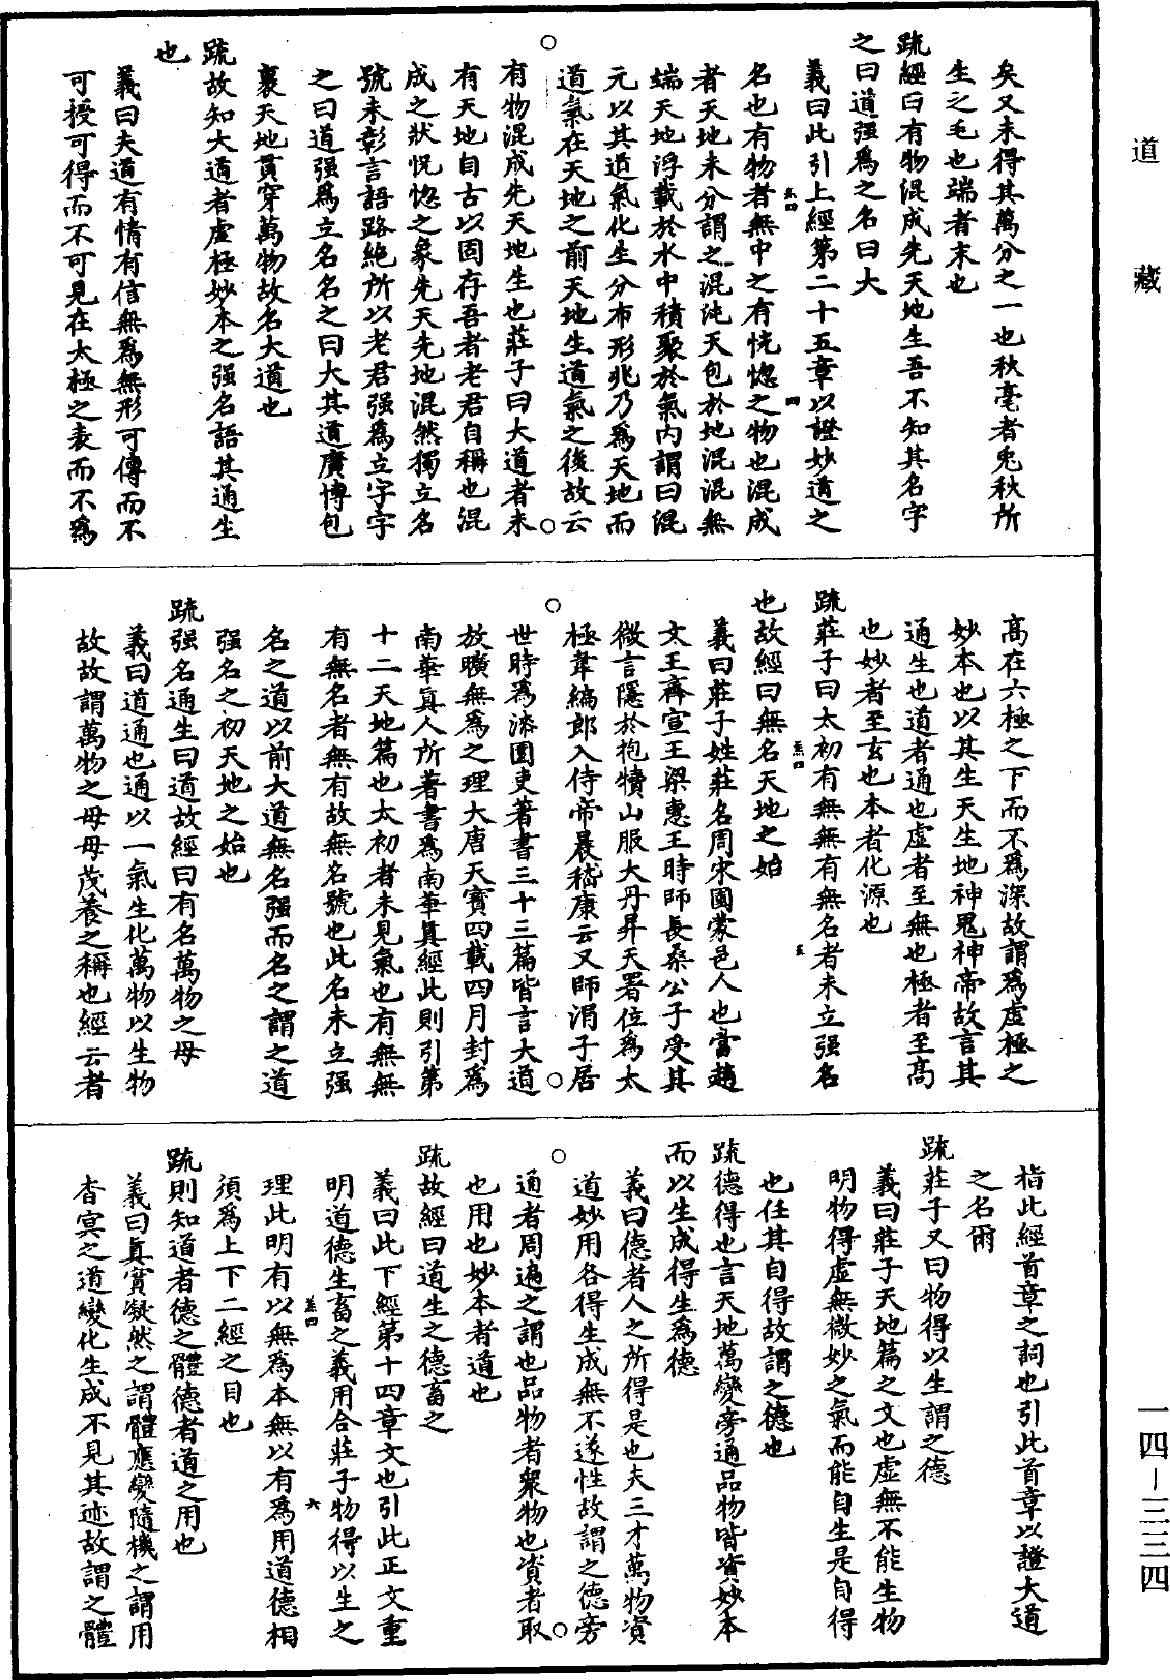 道藏
矣又未得其萬分之一也秋毫者兎秋所
生之毛也端者末也
疏經曰有物混成先天地生吾不知其名字
之曰道强爲之名曰大
義曰此引上經第二十五章以證妙道之
名也有物者無中之有恍惚之物也混成
者天地未分謂之混沌天包於地混混無
端天地浮載於水中積聚於氣內謂曰混
元以其道氣化生分布形兆乃爲天地而
道氣在天地之前天地生道氣之後故云
有物混成先天地生也莊子曰大道者未
有天地自古以固存吾者老君自稱也混
成之狀恍惚之象先天先地混然獨立名
號未彰言語路絶所以老君强爲立字字
之曰道强爲立名名之曰大其道廣博包
裹天地貫穿萬物故名大道也
疏故知大道者虛極妙本之强名語其通生
也
義曰夫道有情有信無爲無形可傳而不
可授可得而不可見在太極之表而不爲
高在六極之下而不爲深故謂爲虛極之
妙本也以其生天生地神鬼神帝故言其
通生也道者通也虛者至無也極者至高
也妙者至玄也本者化源也
疏莊子曰太初有無無有無名者未立强名
也故經曰無名天地之始
義曰莊子姓莊名周宋國蒙邑人也當趙
文王齊宣王梁惠王時師長桑公子受其
微言隱於抱犢山服大丹昇天署位爲太
極韋編郎入侍帝晨嵇康云又師涓子居
世時爲漆園吏著書三十三篇皆言大道
放曠無爲之理大唐天寶四載四月封爲
南華真人所著書爲南華真經此則引第
十二天地篇也太初者未見氣也有無無
有無名者無有故無名號也此名未立强
名之道以前大道無名强而名之謂之道
强名之初天地之始也
疏强名通生曰道故經曰有名萬物之母
義曰道通也通以一氣生化萬物以生物
故故謂萬物之母母茂養之稱也經云者
指此經首章之詞也引此首章以證大道
之名爾
疏莊子又曰物得以生謂之德
義曰莊子天地篇之文也虛無不能生物
明物得虛無微妙之氣而能自生是自得
也任其自得故謂之德也
疏德得也言天地萬變旁通品物皆資妙本
而以生成得生爲德
義曰德者人之所得是也夫三才萬物資
道妙用各得生成無不遂性故謂之德旁
通者周遍之謂也品物者衆物也資者取
也用也妙本者道也
疏故經曰道生之德畜之
義曰此下經第十四章文也引此正文重
明道德生畜之義用合莊子物得以生之
理此明有以無爲本無以有爲用道德相
須爲上下二經之目也
疏則知道者德之體德者道之用也
義曰真實凝然之謂體應變隨機之謂用
杳冥之道變化生成不見其迹故謂之體
一四－三三四